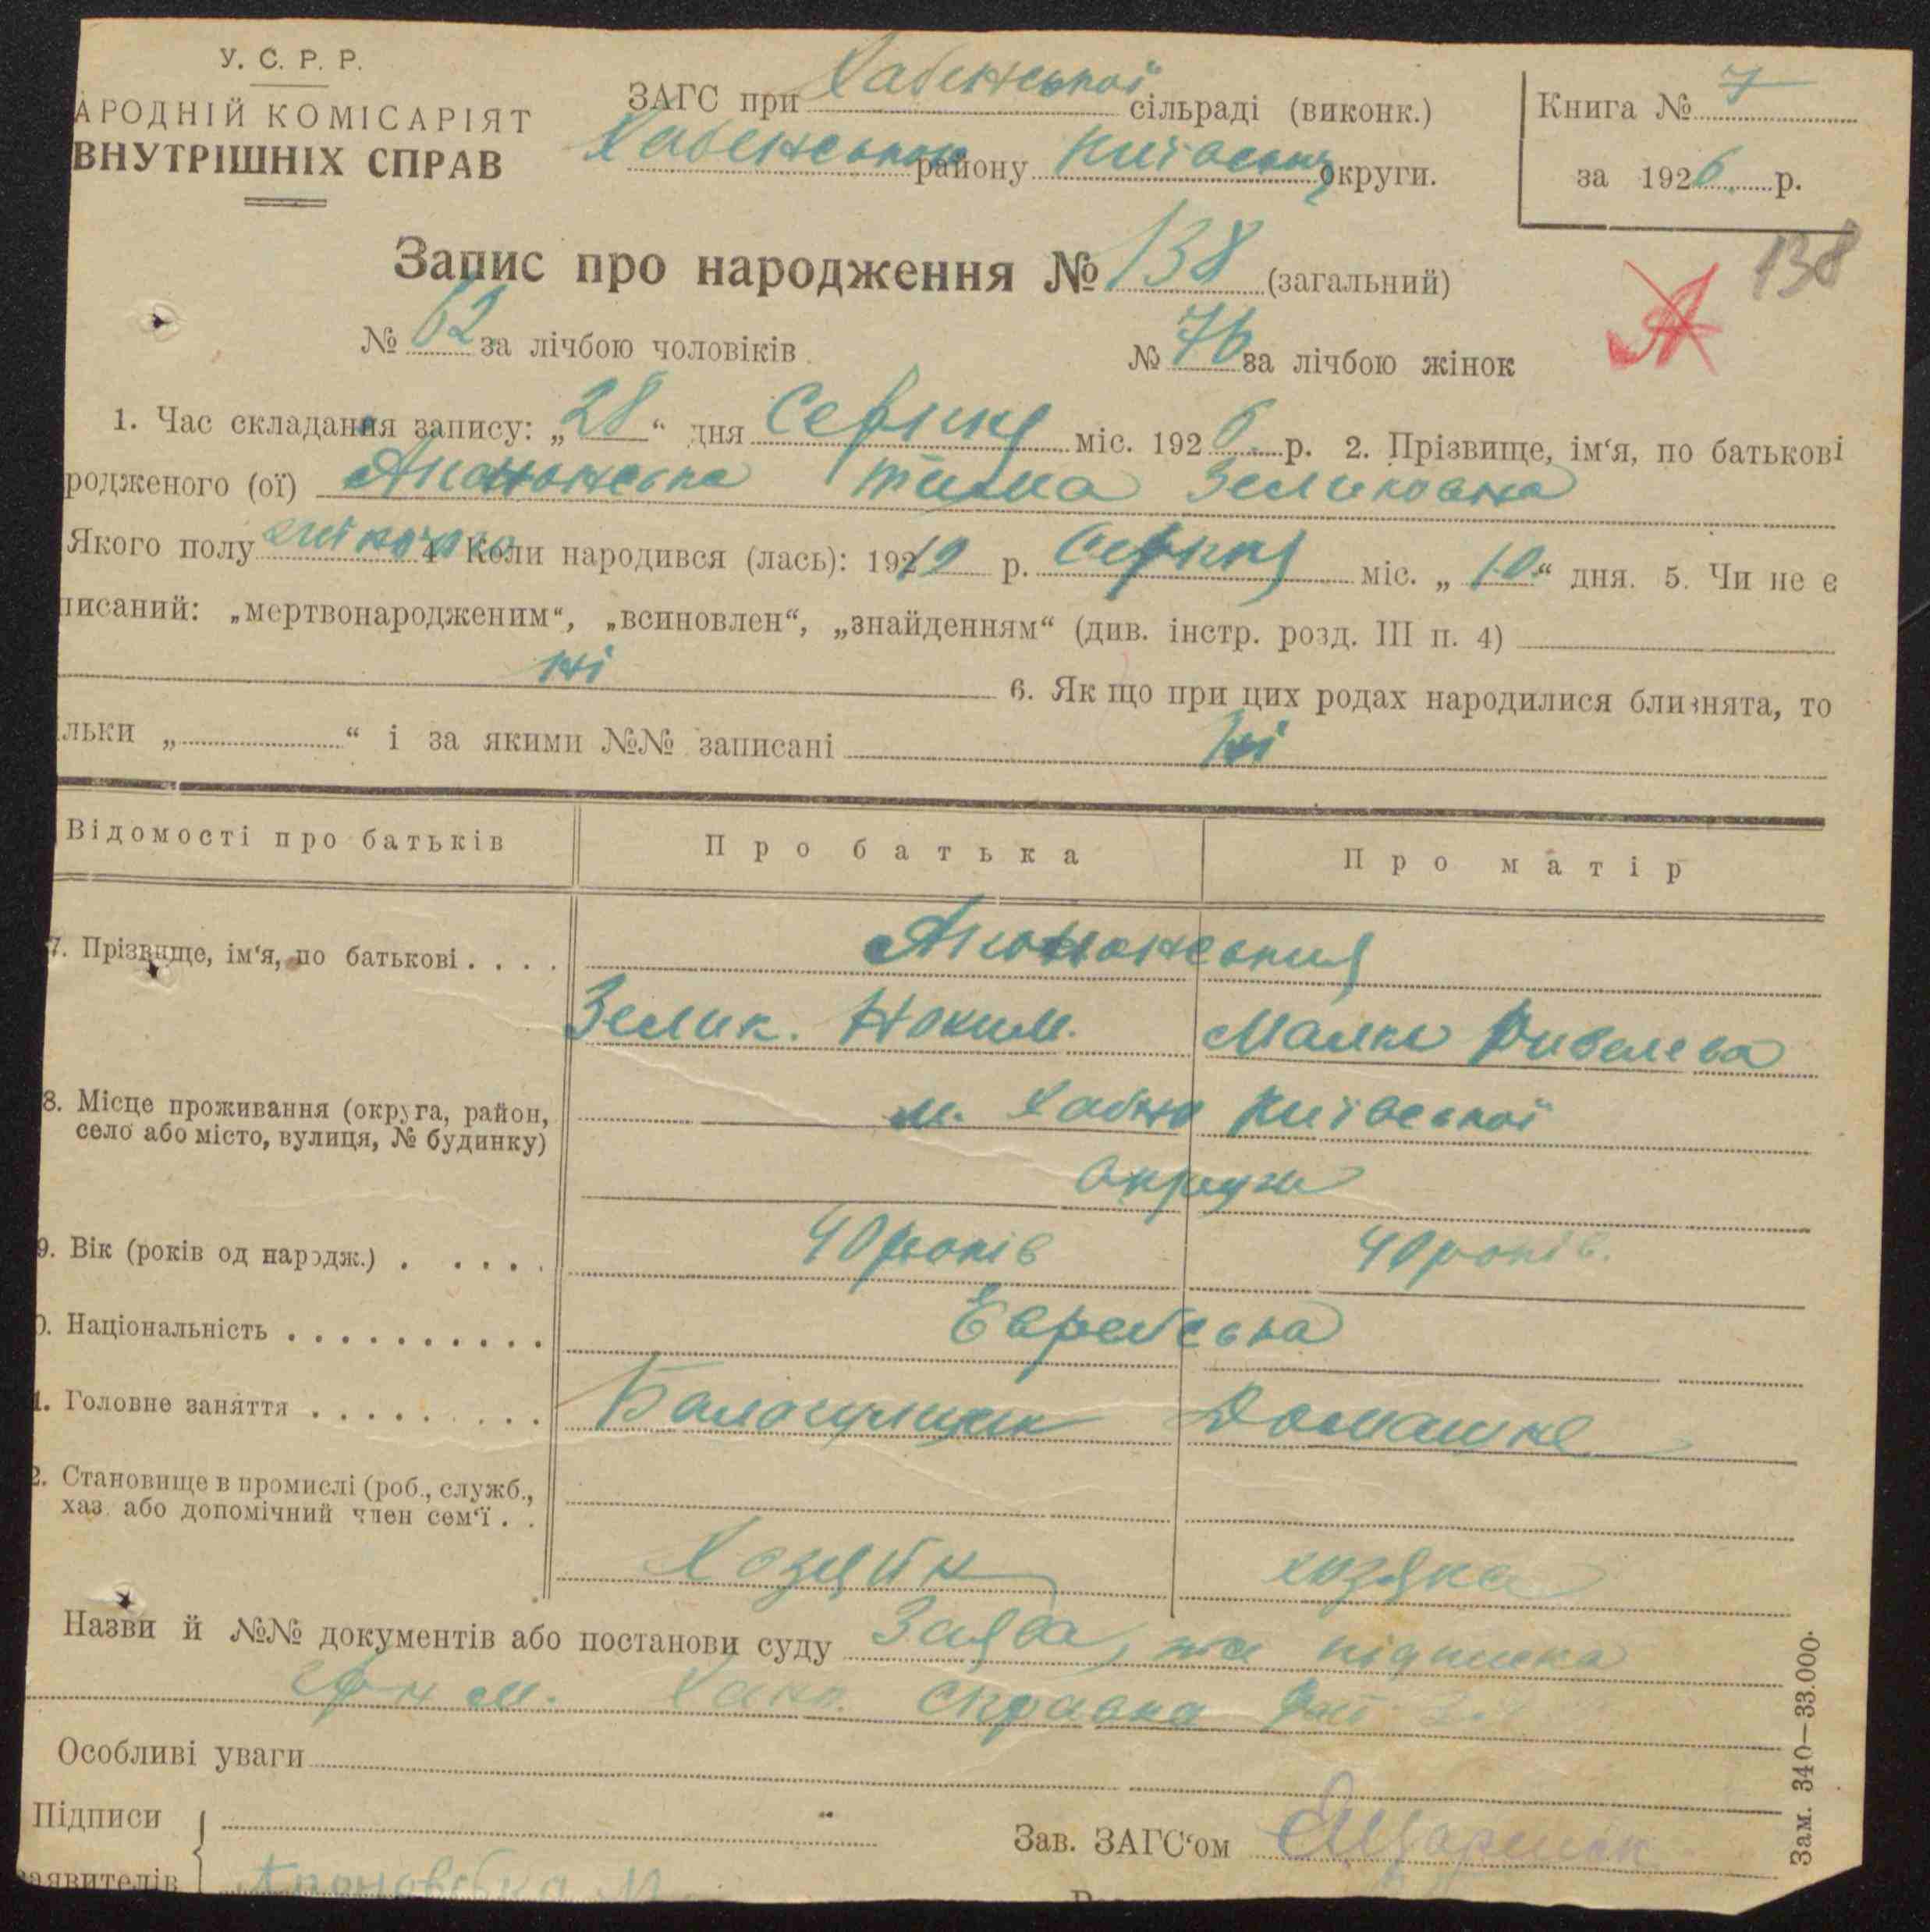 У. С. Р. Р.
АРОДНІЙ КОМІСАРІЯТ
ВНУТРІШНІХ СПРАВ
ЗАГС при Хабенської сільраді (виконк.)
Хабенського району Київськ округи.
Книга № 7
за 1926 р.
138
Запис про народження № 138 (загальний)
№ 62 за лічбою чоловіків № 76 за лічбою жінок
1. Час складання запису: „28“ дня Серпня міс. 1926 р. 2. Прізвище, ім‘я, по батькові
родженого (ої) Зеликовна
Якого полу 4 Коли народився (лась): 1912 р. Серпня міс. „10“ дня. 5. Чи не є
писаний: „мертвонародженим“, „всиновлен“, „знайденням“ (див. інстр. розд. III п. 4)
ні 6. Як що при цих родах народилися близнята, то
льки „ “ і за якими №№ записані ні
Відомості про батьків Про батька Про матір
7. Прізвище, ім‘я, по батькові . . . .
Зелик. Малка
8. Місце проживання (округа, район, м. Хабно Київської
село або місто, вулиця, № будинку)
округи
9. Вік (років од народж.) . . . . . 40 років 40 років.
0. Національність . . . . . . . . . . Еврейська
1. Головне заняття . . . . . . . . . Балагульщик Домашне
2. Становище в промислі (роб., служб.,
хаз. або допомічний член сем‘ї . .
Хозяйн хозяка
Назви й №№ документів або постанови суду Заява, підписка
м. справка
Особливі уваги
Підписи
Зав. ЗАГС‘ом
заявителів
Зам. 340—33.000.